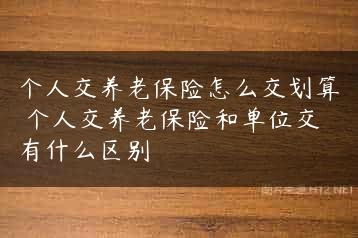 个人交养老保险怎么交划算
个人交养老保险和单位交
有什么区别